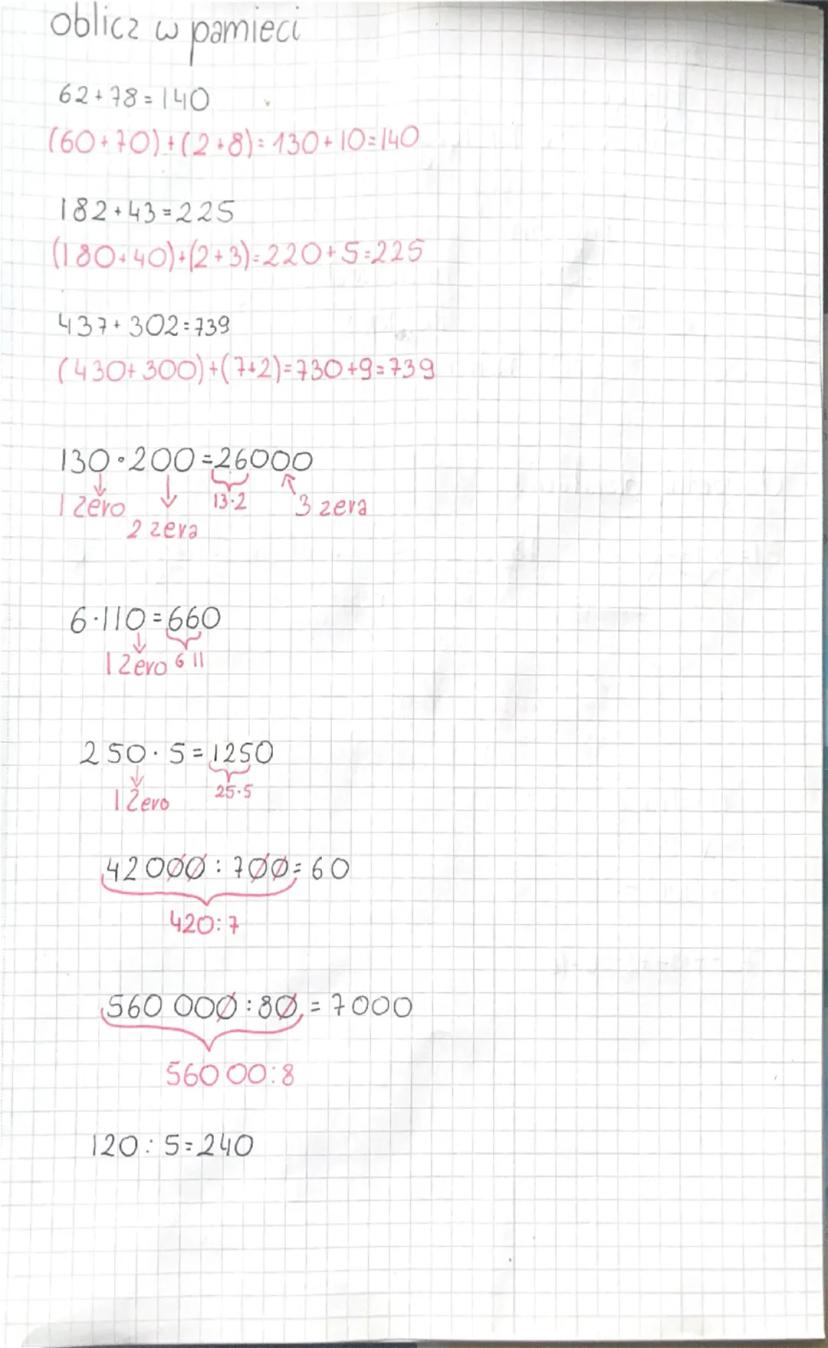 oblicz w pamieci
62+78=140
(60+70)+(2+8)=130+10=140
182+43=225
(180+40)+(2+3)=220+5=225
437+302=739
(430+300)+(7+2)=730+9=739
130·200=26000
1 zero 2 zera 13·2 3 zera
6·110=660
1 zero 6 11
250·5=1250
1 zero 25·5
42000:700=60
420:7
560 000:80=7000
560 00:8
120:5=240